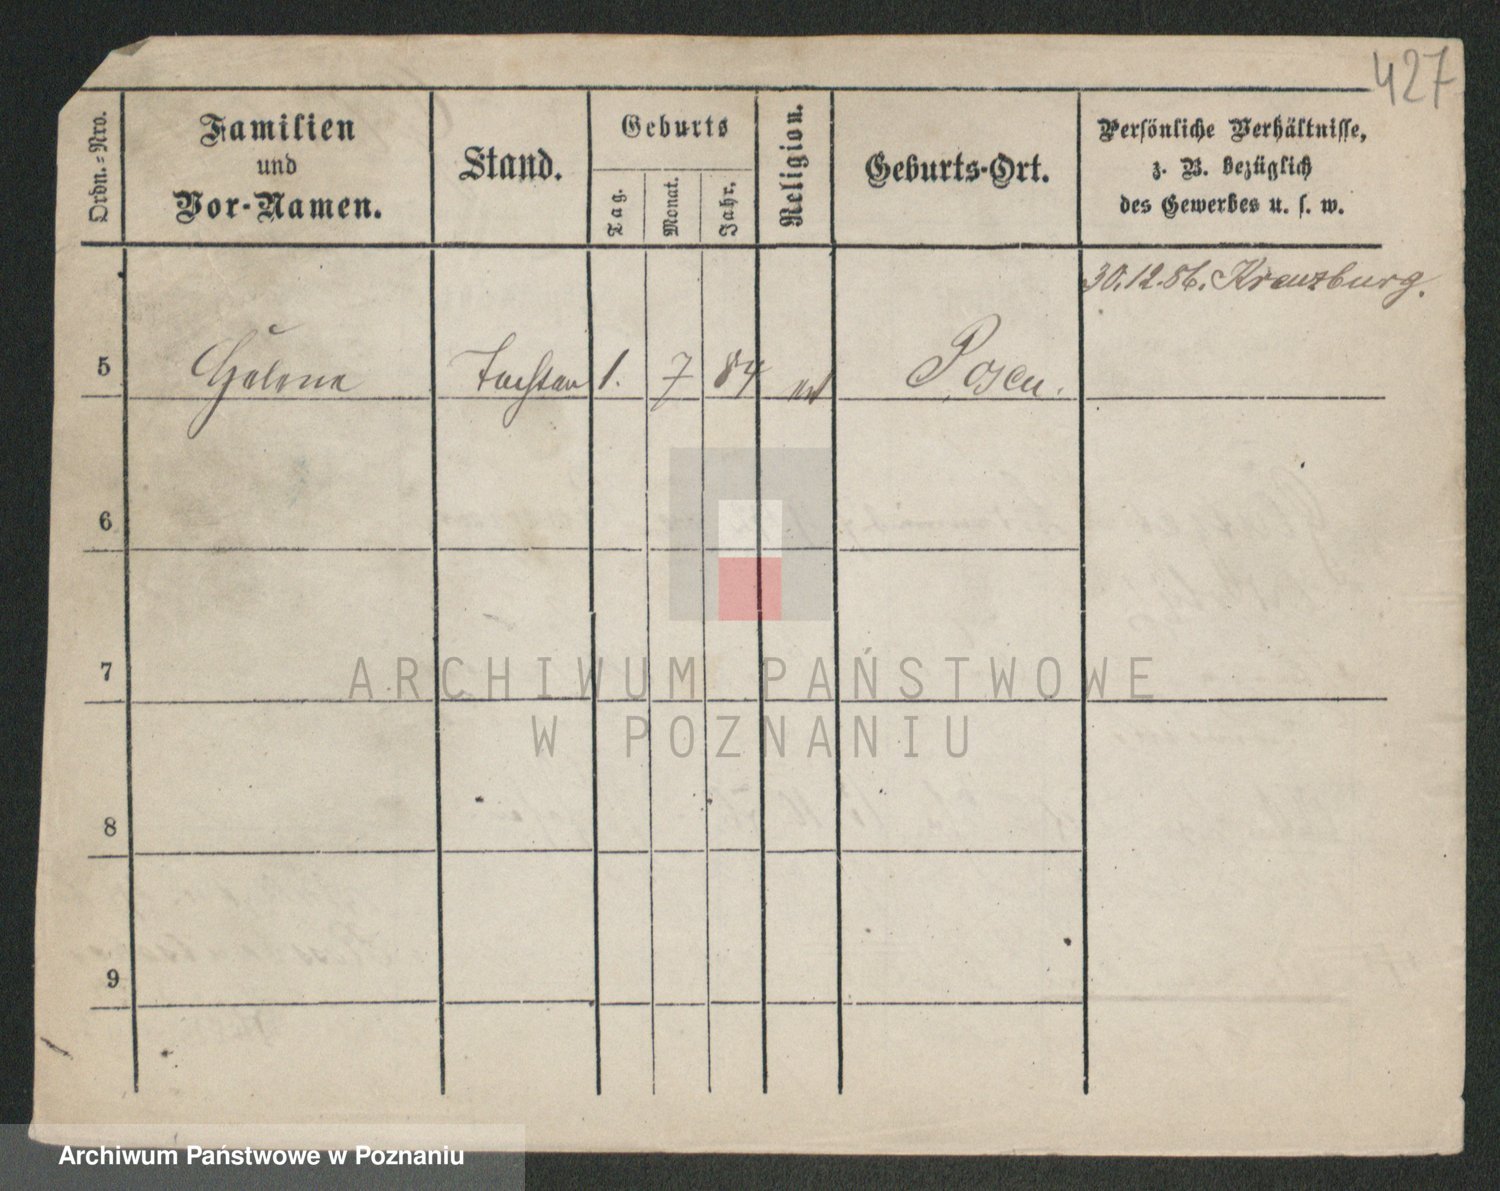 427
Ordn.=Nro.
Familien
und
Vor-Namen.
Stand.
Geburts
Tag.
Monat.
Jahr.
Religion.
Geburts-Ort.
Persönliche Verhältnisse,
z. B. bezüglich
des Gewerbes u. s. w.
30.12.86. Kreuzburg.
5 Helene 1. 7 84 Posen.
6
7
8
9
ARCHIWUM PAŃSTWOWE
W POZNANIU
Archiwum Państwowe w Poznaniu